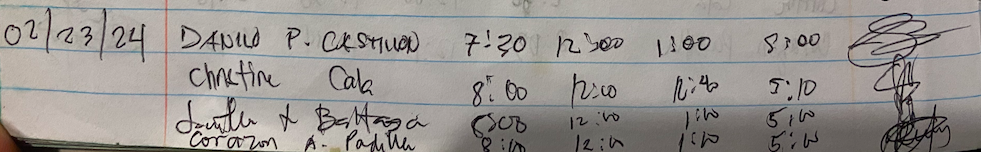 02/23/24 DANILO P. CASTILLON 7:30 12:00 1:00 8:00
Christine Cala 8:00 12:00 12:40 5:10
8:00 12:10 1:10 5:10
Corazon A. Padilla 8:10 12:10 1:10 5:10